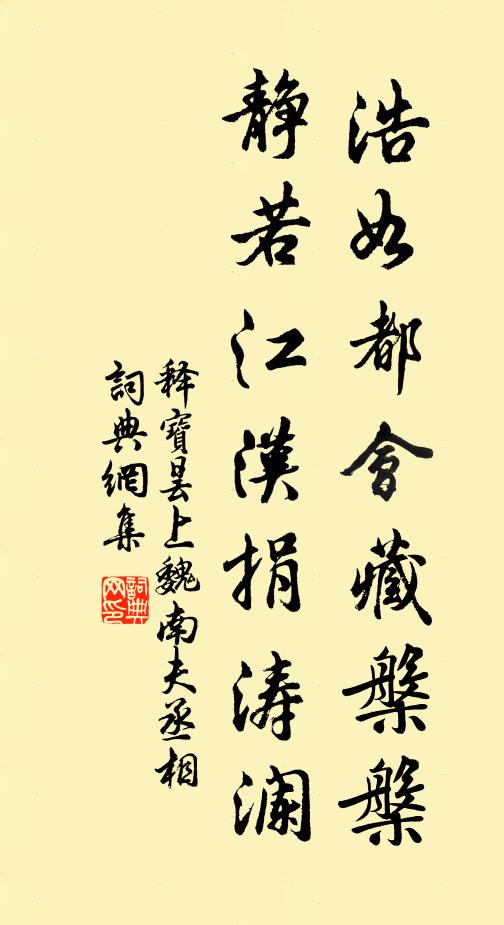 浩如都會藏槃槃
静若江漢捐濤瀾
釋寶曇上魏南夫丞相
詞典網集
詞典網印